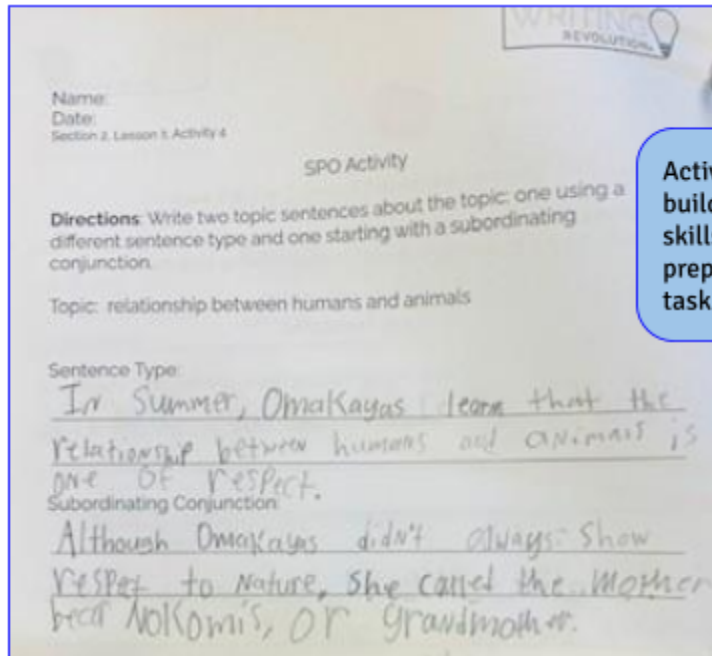 WRITING
REVOLUTION
Name:
Date:
Section 2, Lesson 1, Activity 4
SPO Activity
Directions: Write two topic sentences about the topic: one using a
different sentence type and one starting with a subordinating
conjunction.
Topic: relationship between humans and animals
Sentence Type:
In Summer, Omakayas learn that the
relationship between humans and animals is
one of respect.
Subordinating Conjunction:
Although Omakayas didn't always show
respet to Nature, she called the mother
bear Nokomis, or grandmother.
Activ
build
skills
prep
task